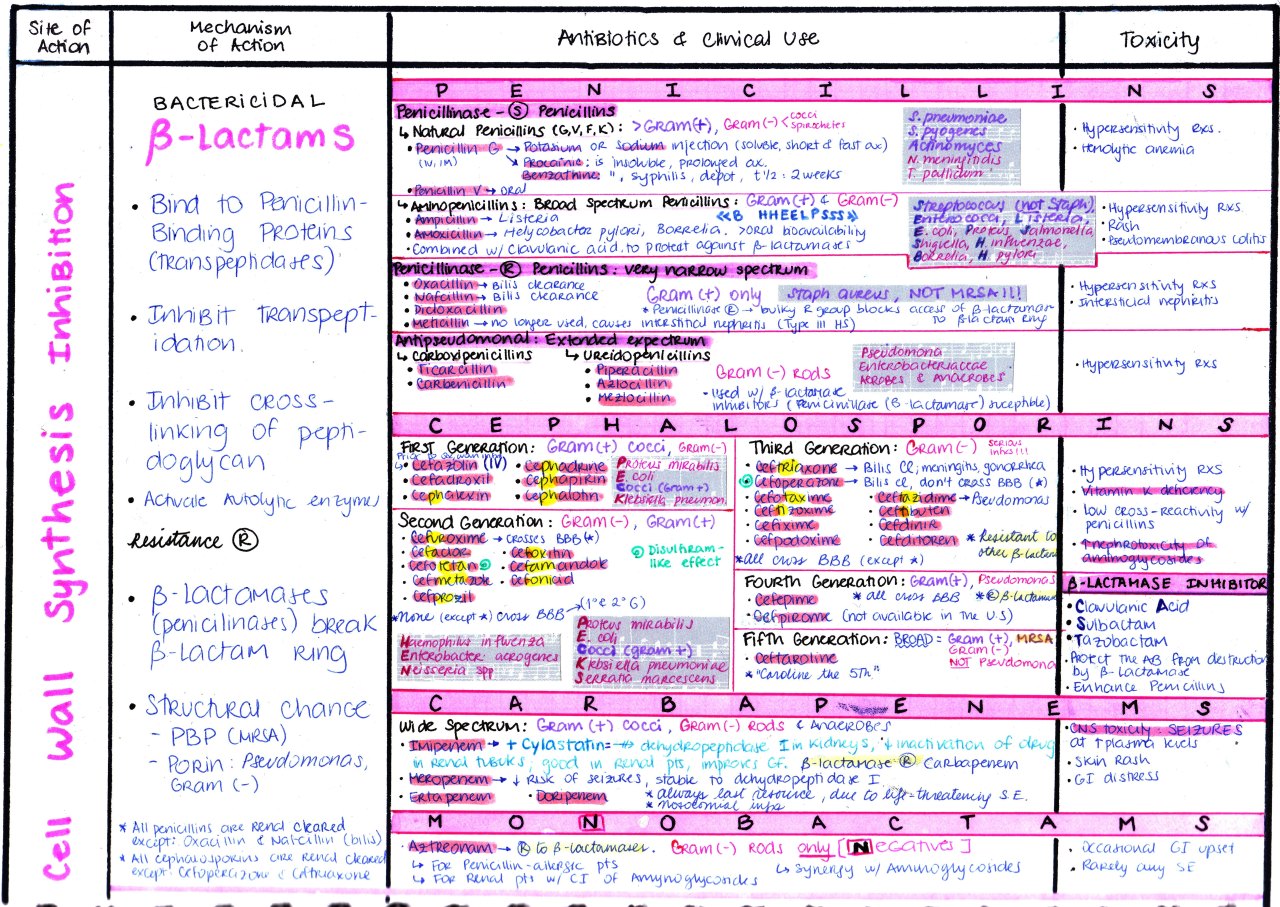 Site of Action
Mechanism of Action
Antibiotics & Clinical Use
Toxicity
Cell Wall Synthesis Inhibition
BACTERICIDAL
β-Lactams
• Bind to Penicillin-
Binding Proteins
(transpeptidases)
• Inhibit transpept-
idation.
• Inhibit cross-
linking of pepti-
doglycan
• Activate Autolytic enzymes
Resistance Ⓡ
• β-lactamases
(penicilinases) break
β-lactam ring
• Structural change
- PBP (MRSA)
- Porin: Pseudomonas,
Gram (-)
* All penicillins are Renal cleared
except: Oxacillin & Nafcillin (bilis)
* All cephalosporins are Renal cleared
except: Cefoperazone & Ceftriaxone
PENICILLINS
Penicillinase - Ⓢ Penicillins
↳ Natural Penicillins (G,V,F,K): >Gram(+), Gram(-) < cocci
spirochetes
• Penicillin G → Potasium OR Sodium injection (soluble, short & fast ax)
(IV, IM) ↘ Procaine: is insoluble, prolonged ax.
Benzathine: ", syphilis, depot, t½: 2 weeks
• Penicillin V → oral
S. pneumoniae
S. pyogenes
Actinomyces
N. meningitidis
T. pallidum
• Hypersensitivity rxs.
• Hemolytic anemia
↳ Aminopenicillins: Broad Spectrum Penicillins: Gram(+) & Gram(-)
• Ampicillin → Listeria
«B HHEELPSSS»
• Amoxicillin → Helycobacter pylori, Borrelia. >oral bioavailability
• Combined w/ Clavulanic acid to protect against β-lactamases
Streptococcus (not Staph)
Enterococci, Listeria,
E. coli, Proteus, Salmonella
Shigella, H. influenzae,
Borrelia, H. pylori
• Hypersensitivity Rxs.
• Rash
• Pseudomembranous colitis
Penicillinase - Ⓡ Penicillins: very narrow spectrum
• Oxacillin → Bilis clearance
• Nafcillin → Bilis clearance
• Dicloxacillin
• Meticillin → no longer used, causes interstitial nephritis (Type III HS)
Gram (+) only
Staph aureus, NOT MRSA!!!
* Penicillinase Ⓡ → bulky R group blocks access of β-lactamase
to β-lactam ring
• Hypersensitivity Rxs
• Intersticial nephritis
Antipseudomonal: Extended expectrum
↳ Carboxipenicillins
• Ticarcillin
• Carbenicillin
↳ Ureidopenicillins
• Piperacillin
• Azlocillin
• Mezlocillin
Gram (-) rods
- Used w/ β-lactamase
inhibitors (Penicinillase (β-lactamase) suceptible)
Pseudomona
Enterobacteriaceae
AEROBES & ANAEROBES
• Hypersensitivity Rxs
CEPHALOSPORINS
First Generation: Gram(+) cocci, Gram(-)
• Cefazolin (IV)
• Cefadroxil
• Cephalexin
• Cephradrine
• Cephapirin
• Cephalotin
Proteus mirabilis
E. coli
Cocci (gram +)
Klebsiella pneumon.
Second Generation: Gram(-), Gram(+)
• Cefuroxime → crosses BBB (*)
• Cefaclor
• Cefotetan
• Cefmetazole
• Cefprozil
• Cefoxitin
• Cefamandole
• Cefonicid
Disulfiram-
like effect
* None (except *) cross BBB → (1° & 2° G)
Haemophilus influenza
Enterobacter aerogenes
Neisseria spp
Proteus mirabilis
E. coli
Cocci (gram +)
Klebsiella pneumoniae
Serratia marcescens
Third Generation: Gram(-) serious infxs!!!
• Ceftriaxone → Bilis cl, meningitis, gonorrhea
• Cefoperazone → Bilis cl, don't cross BBB (*)
• Cefotaxime
• Ceftizoxime
• Cefixime
• Cefpodoxime
• Ceftazidime → Pseudomonas
• Ceftibuten
• Cefdinir
• Cefditoren
* Resistant to
other β-lactam
* all cross BBB (except *)
Fourth Generation: Gram(+), Pseudomonas
• Cefepime * all cross BBB *Ⓡ β-lactamase
• Cefpirome (not available in the U.S)
Fifth Generation: BROAD = Gram (+), MRSA
Gram(-)
NOT Pseudomona
• Ceftaroline
* "Caroline the 5th."
• Hypersensitivity Rxs
• Vitamin K deficiency
• low cross-reactivity w/
penicillins
• ↑nephrotoxicity of
aminoglycosides
β-LACTAMASE INHIBITOR
• Clavulanic Acid
• Sulbactam
• Tazobactam
• Protect the AB from destruction
by β-lactamase
• Enhance Penicillins
CARBAPENEMS
Wide Spectrum: Gram (+) cocci, Gram(-) Rods & Anaerobes
• Imipenem → + Cylastatin = dehydropeptidase I in kidneys, ↓ inactivation of drug
in renal tubules, good in Renal pts, improves GF. β-lactamase Ⓡ Carbapenem
• Meropenem → ↓ risk of seizures, stable to dehydropeptidase I
• Ertapenem • Doripenem * always last resource, due to life-threatening S.E.
* Nosocomial infxs
• CNS toxicity: SEIZURES
at ↑ plasma levels
• Skin Rash
• GI distress
MONOBACTAMS
• Aztreonam → Ⓡ to β-lactamases. Gram(-) Rods only [Negatives]
↳ For Penicillin-allergic pts
↳ For Renal pts w/ CI of Amynoglycosides
↳ Synergy w/ Aminoglycosides
• Occasional GI upset
• Rarely any SE